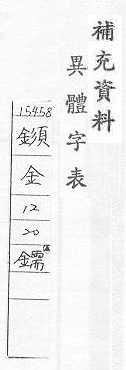 補充資料
異體字表
15458
金
12
20
鑐